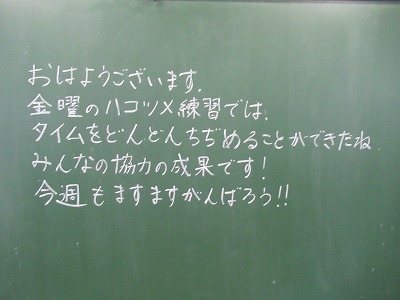 おはようございます.
金曜のハコツメ練習では、
タイムをどんどんちぢめることができたね
みんなの協力の成果です!
今週もますますがんばろう!!